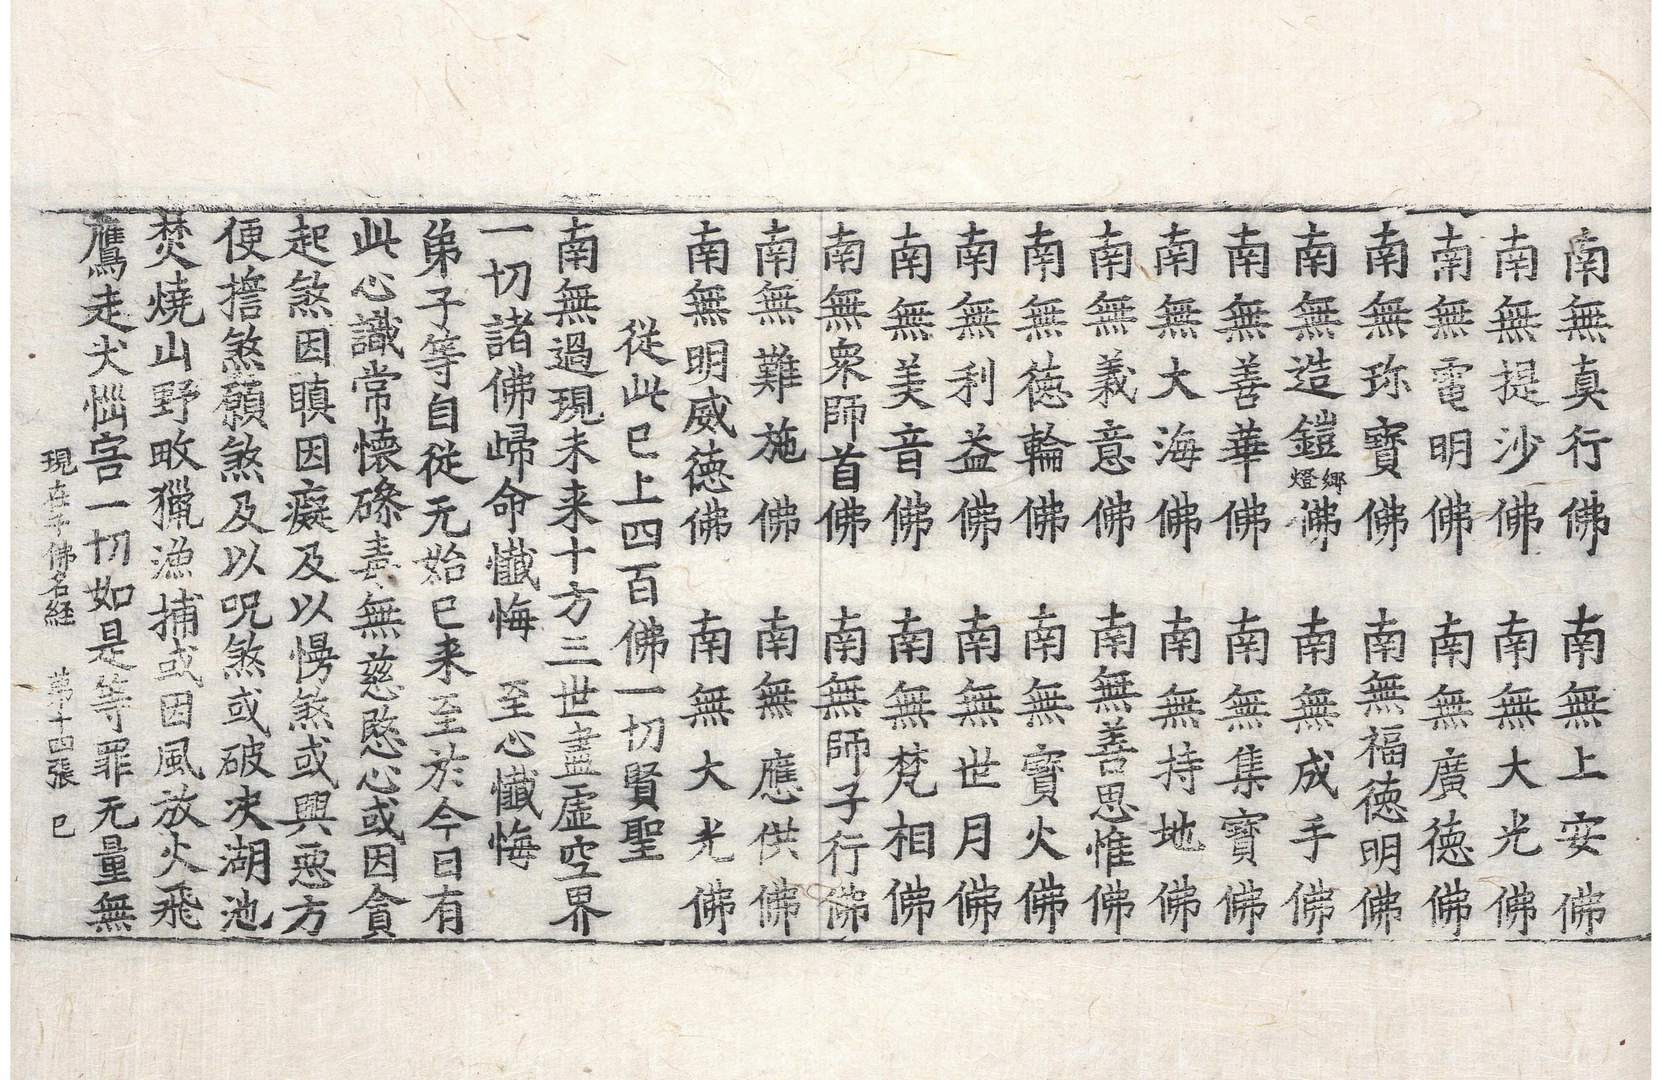 南無真行佛　南無上安佛
南無提沙佛　南無大光佛
南無電明佛　南無廣德佛
南無珎寶佛　南無福德明佛
南無造鎧鄉燈佛　南無成手佛
南無善華佛　南無集寶佛
南無大海佛　南無持地佛
南無義意佛　南無善思惟佛
南無德輪佛　南無寶火佛
南無利益佛　南無世月佛
南無美音佛　南無梵相佛
南無衆師首佛　南無師子行佛
南無難施佛　南無應供佛
南無明威德佛　南無大光佛
從此已上四百佛一切賢聖
南無過現未来十方三世盡虛空界
一切諸佛歸命懺悔　至心懺悔
弟子等自從无始已来至於今日有
此心識常懷磣毒無慈愍心或因貪
起煞因瞋因癡及以慢煞或興惡方
便擔煞願煞及以呪煞或破決湖池
焚燒山野畋獵漁捕或因風放火飛
鷹走犬惱害一切如是等罪无量無
現在千佛名経　第十四張　巳